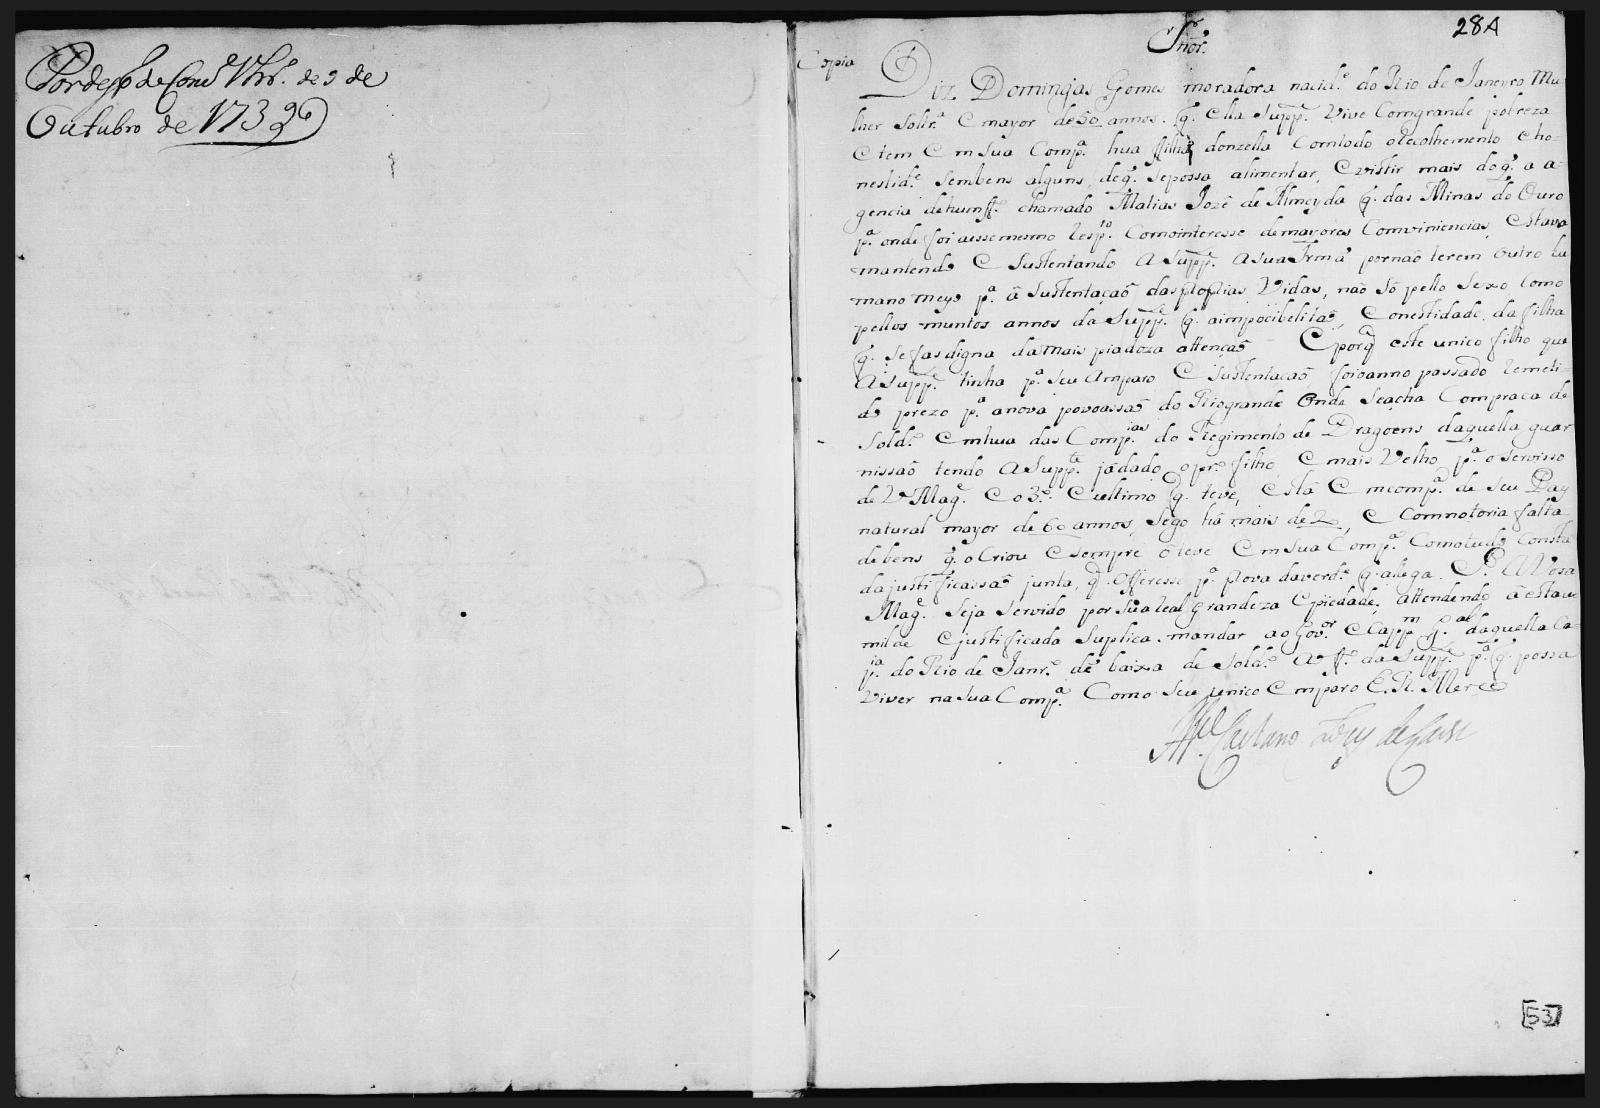 Por desp.º de Cons.º Vltr.º de 9 de
Outubro de 1739
28A
Copia
Snor.
Diz Domingas Gomes moradora nacid.e do Rio de Janeyro Mu-
lher Soltr.ª E mayor de 50 annos. q. Ella Supp.e Vive Comgrande pobreza
E tem Em Sua Comp.ª hua filha donzella Comtodo oRecolhemento Eho-
nestid.e Sembens alguns, deq. Sepossa alimentar, Evistir mais doq. a a-
gencia dehum f.º chamado Matias Jozê de Almeyda q. das Minas do Ouro
p.ª onde foi aessemesmo Resp.to Comointeresse demayores Conviniencias, Estava
mantendo E Sustentando ASupp.e ASuaIrmã pornaõ terem Outro hu
mano meyo p.ª â Sustentaçaõ dasproprias Vidas, não Só pello Sexo Como
pellos muntos annos daSupp.e q. aimpocibelitaõ, Eonestidade da filha
q. Sefasdigna damais piadoza attençaõ Eporq este unico filho que
ASupp.e tinha p.ª Seu Amparo E Sustentacaõ, foioanno passado Remeti-
do prezo p.ª anova povoassaõ do Riogrande Onde Seacha Compraca de
Sold.º Emhua das Comp.ias do Regimento de Dragoens daquella guar
nissaõ tendo ASupp.te jádado opr.º filho E mais Velho p.ª o Servisso
de V Mag.e Eo3.º Eultimo q. teve, Está Emcomp.ª de Seu Pay
natural mayor de 60 annos, Sego há mais de 20, E Comnotoria falta
debens q. oCriou Esempre oteve Em Sua Comp.ª Comotudo Consta
dajustificassaõ junta, q Offeresse p.ª prova daverd.e q. alega. P. a Vosa
Mag.e Seja Servido por Suareal grandeza Epiedade, attendendo áestau
milde Ejustificada Suplica, mandar aoGov.or ECapp.m g.al daquella Ca-
p.ia do Rio de Janr.º dê baixa de Sold.º Ao f.º da Supp.e p.ª q. possa
Viver na Sua Comp.ª Como Seu unico Emparo E. R. Merce
M.el Caetano Lopes de Lavre
[53]